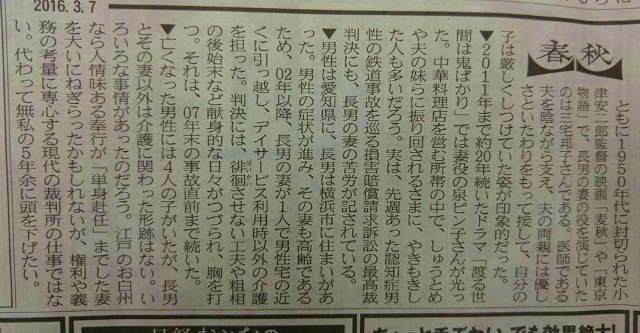 2016.3.7
春秋
ともに1950年代に封切られた小
津安二郎監督の映画「麦秋」や「東京
物語」で、長男の妻の役を演じていた
のは三宅邦子さんである。医師である
夫を陰ながら支え、夫の両親には優し
さといたわりをもって接して、自分の
子は厳しくしつけていた姿が印象的だった。
▼2011年まで約20年続いたドラマ「渡る世
間は鬼ばかり」では妻役の泉ピン子さんが光っ
た。中華料理店を営む所帯の中で、しゅうとめ
や夫の妹らに振り回されるさまに、やきもきし
た人も多いだろう。実は、先週あった認知症男
性の鉄道事故を巡る損害賠償請求訴訟の最高裁
判決にも、長男の妻の苦労が記されている。
▼男性は愛知県に、長男は横浜市に住まいがあ
った。男性の症状が進み、その妻も高齢である
ため、02年以降、長男の妻が1人で男性宅の近
くに引っ越し、デイサービス利用時以外の介護
を担った。判決には、徘徊させない工夫や粗相
の後始末など献身的な日々がつづられ、胸を打
つ。それは、07年末の事故直前まで続いた。
▼亡くなった男性には4人の子がいたが、長男
とその妻以外は介護に関わった形跡はない。い
ろいろな事情があったのだろう。江戸のお白州
なら人情味ある奉行が「単身赴任」までした妻
を大いにねぎらったかもしれないが、権利や義
務の考量に専心する現代の裁判所の仕事ではな
い。代わって無私の5年余に頭を下げたい。